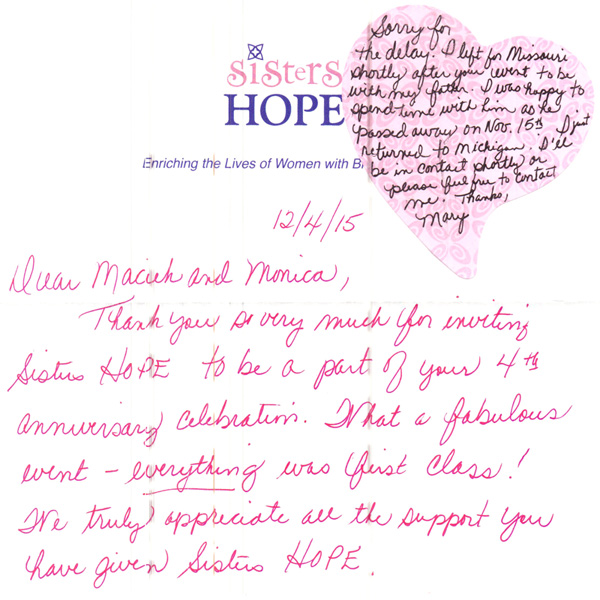 Sisters
HOPE
Enriching the Lives of Women with
Sorry for
the delay. I left for Missouri
shortly after your event to be
with my father. I was happy to
spend time with him as he
passed away on Nov. 15th. I just
returned to Michigan. I'll
be in contact shortly or
please feel free to contact
me. Thanks,
Mary
12/4/15
Dear Maciek and Monica,
Thank you so very much for inviting
Sisters HOPE to be a part of your 4th
anniversary celebration. What a fabulous
event - everything was first class!
We truly appreciate all the support you
have given Sisters HOPE.